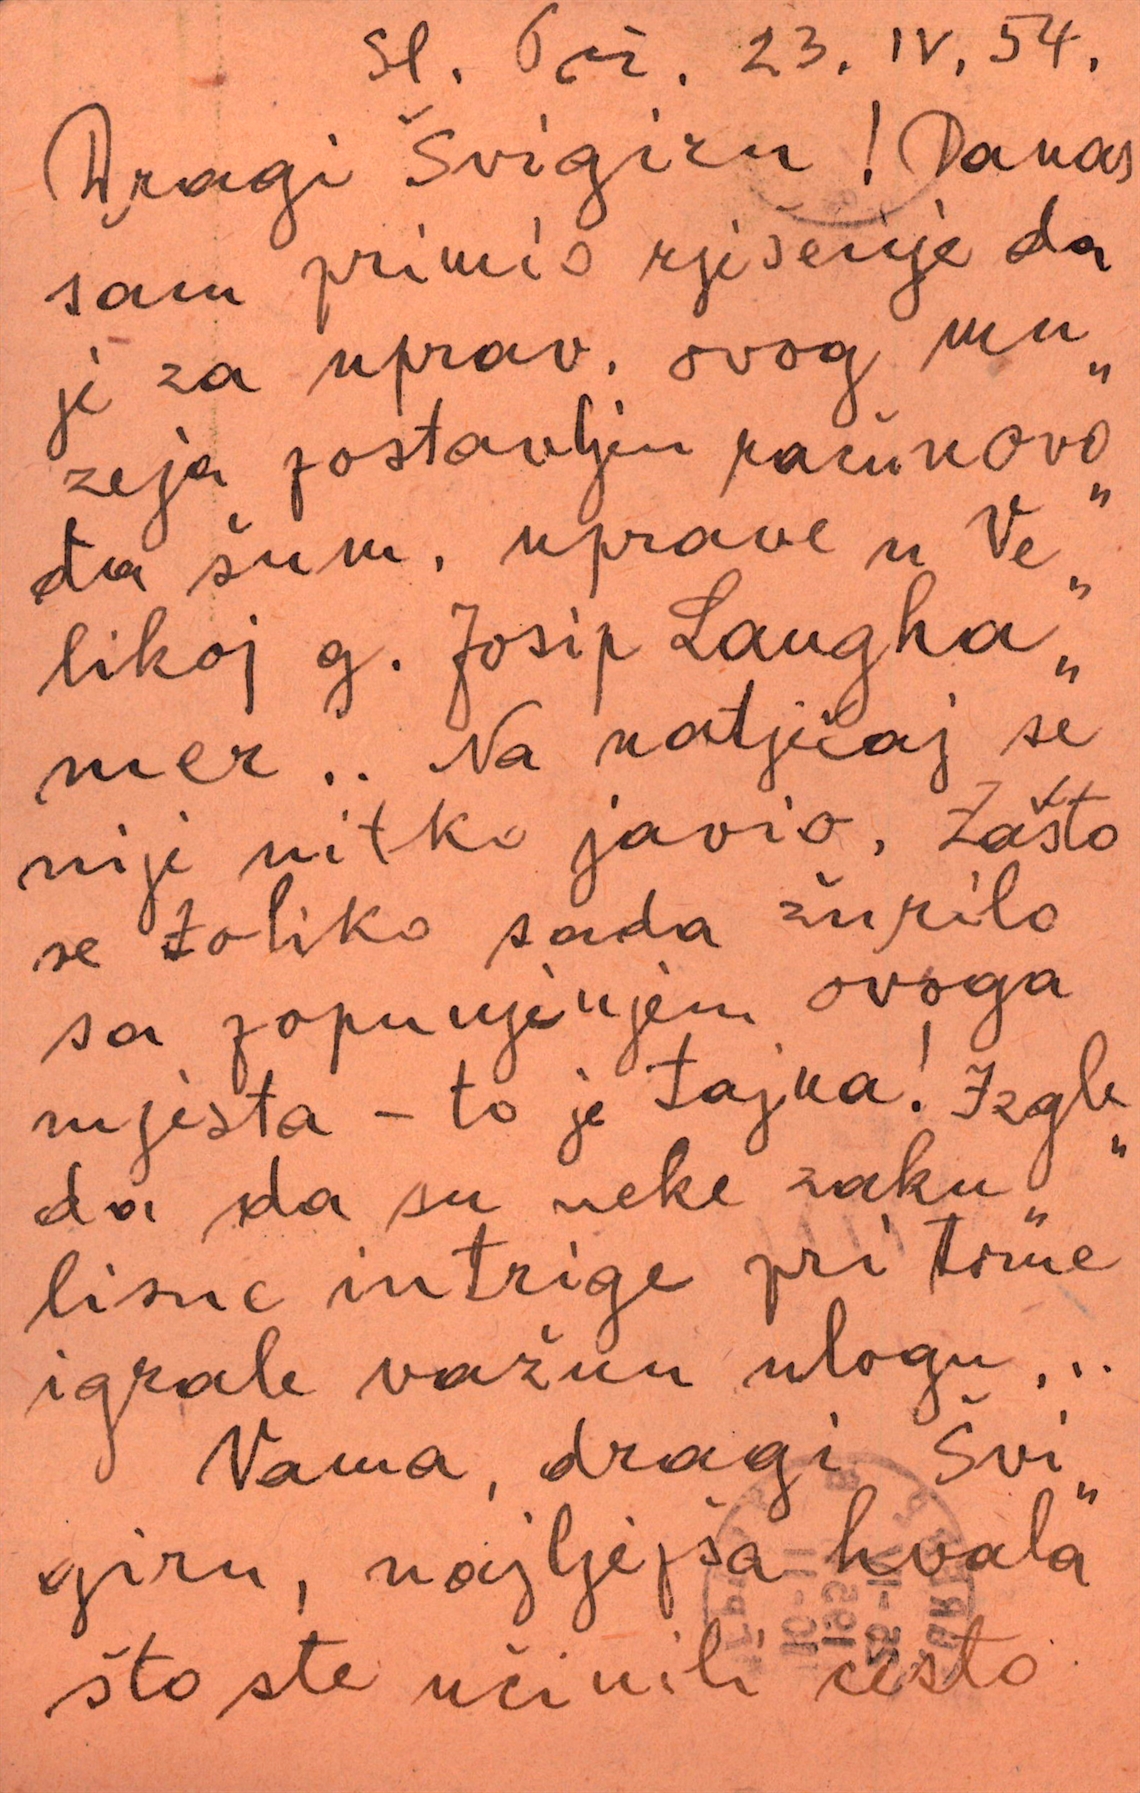 Sl. 23. IV. 54.
Dragi Švigiru! Danas
sam primio rješenje da
je za uprav. ovog mu„
zeja postavljen računovo„
đa šum. uprave u Ve„
likoj g. Josip Laugha„
mer .. Na natječaj se
nije nitko javio. Zašto
se toliko sada žurilo
sa popunjenjem ovoga
mjesta – to je tajna! Izgle„
da da su neke zaku„
lisne intrige pri tome
igrale važnu ulogu...
Vama, dragi Švi„
giru, najljepša hvala
što ste učinili